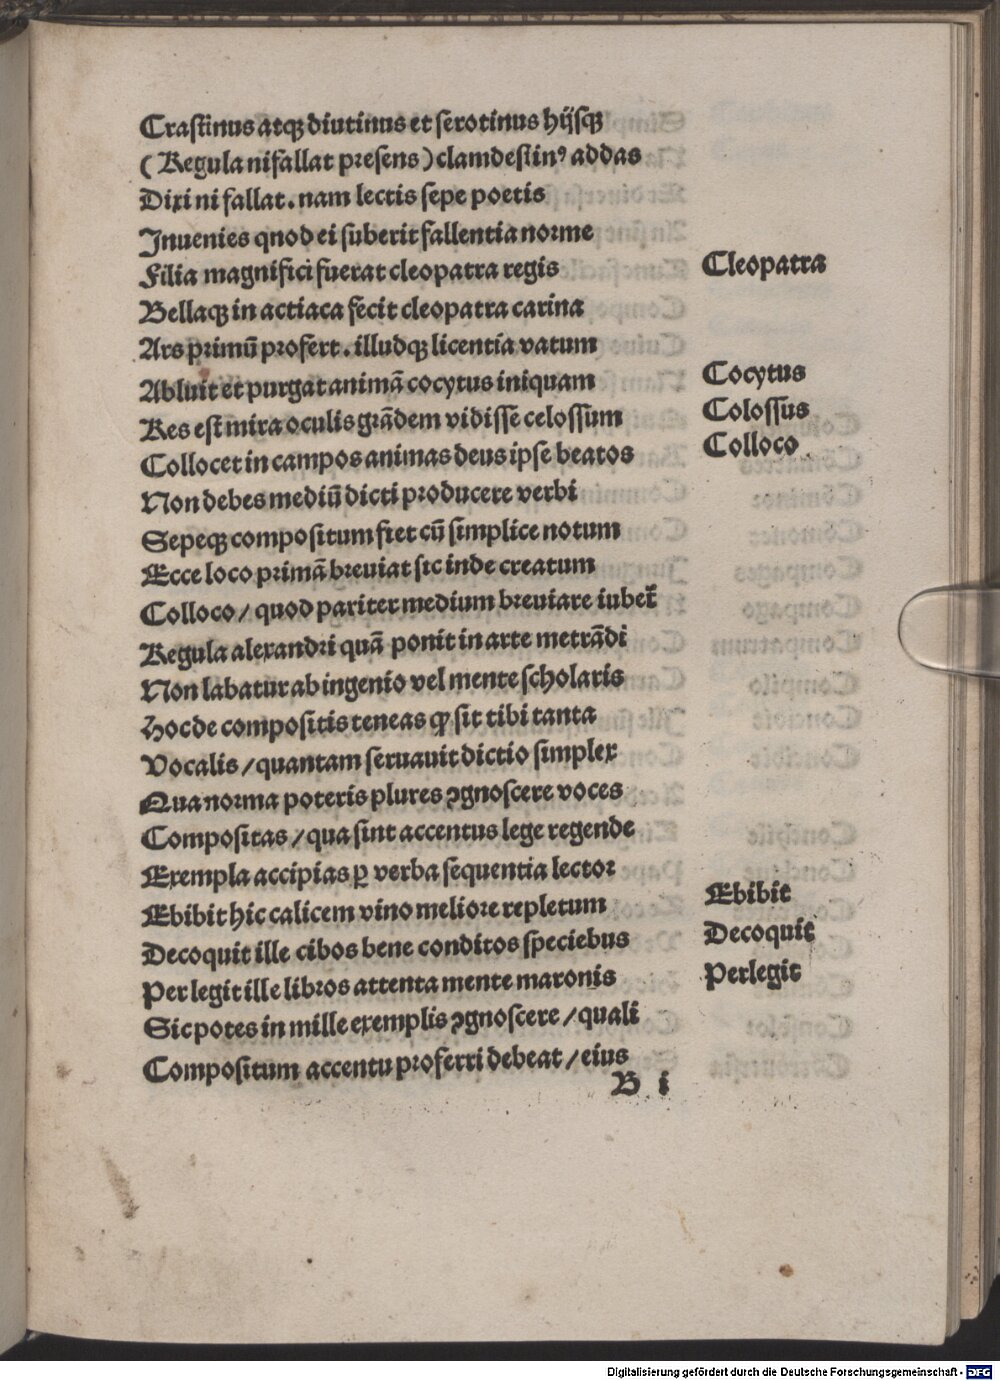 Crastinus atqꝫ diutinus et serotinus hijsqꝫ
( Regula ni fallat presens ) clamdestinꝰ addas
Dixi ni fallat . nam lectis sepe poetis
Inuenies qnod ei suberit fallentia norme
Filia magnifici fuerat cleopatra regis
Cleopatra
Bellaqꝫ in actiaca fecit cleopatra carina
Ars primū profert . illudqꝫ licentia vatum
Abluit et purgat animā cocytus iniquam
Cocytus
Res est mira oculis grādem vidisse celossum
Colossus
Collocet in campos animas deus ipse beatos
Colloco
Non debes mediū dicti producere verbi
Sepeqꝫ compositum fiet cū simplice notum
Ecce loco primā breuiat sic inde creatum
Colloco / quod pariter medium breuiare iubet᷑
Regula alexandri quā ponit in arte metrādi
Non labatur ab ingenio vel mente scholaris
Hoc de compositis teneas ꝙ sit tibi tanta
Vocalis / quantam seruauit dictio simplex
Qua norma poteris plures ꝯgnoscere voces
Compositas / qua sint accentus lege regende
Exempla accipias ꝑ verba sequentia lector
Ebibit hic calicem vino meliore repletum
Ebibit
Decoquit ille cibos bene conditos speciebus
Decoquit
Perlegit ille libros attenta mente maronis
Perlegit
Sic potes in mille exemplis ꝯgnoscere / quali
Compositum accentu proferri debeat / eius
B i
Digitalisierung gefördert durch die Deutsche Forschungsgemeinschaft - DFG